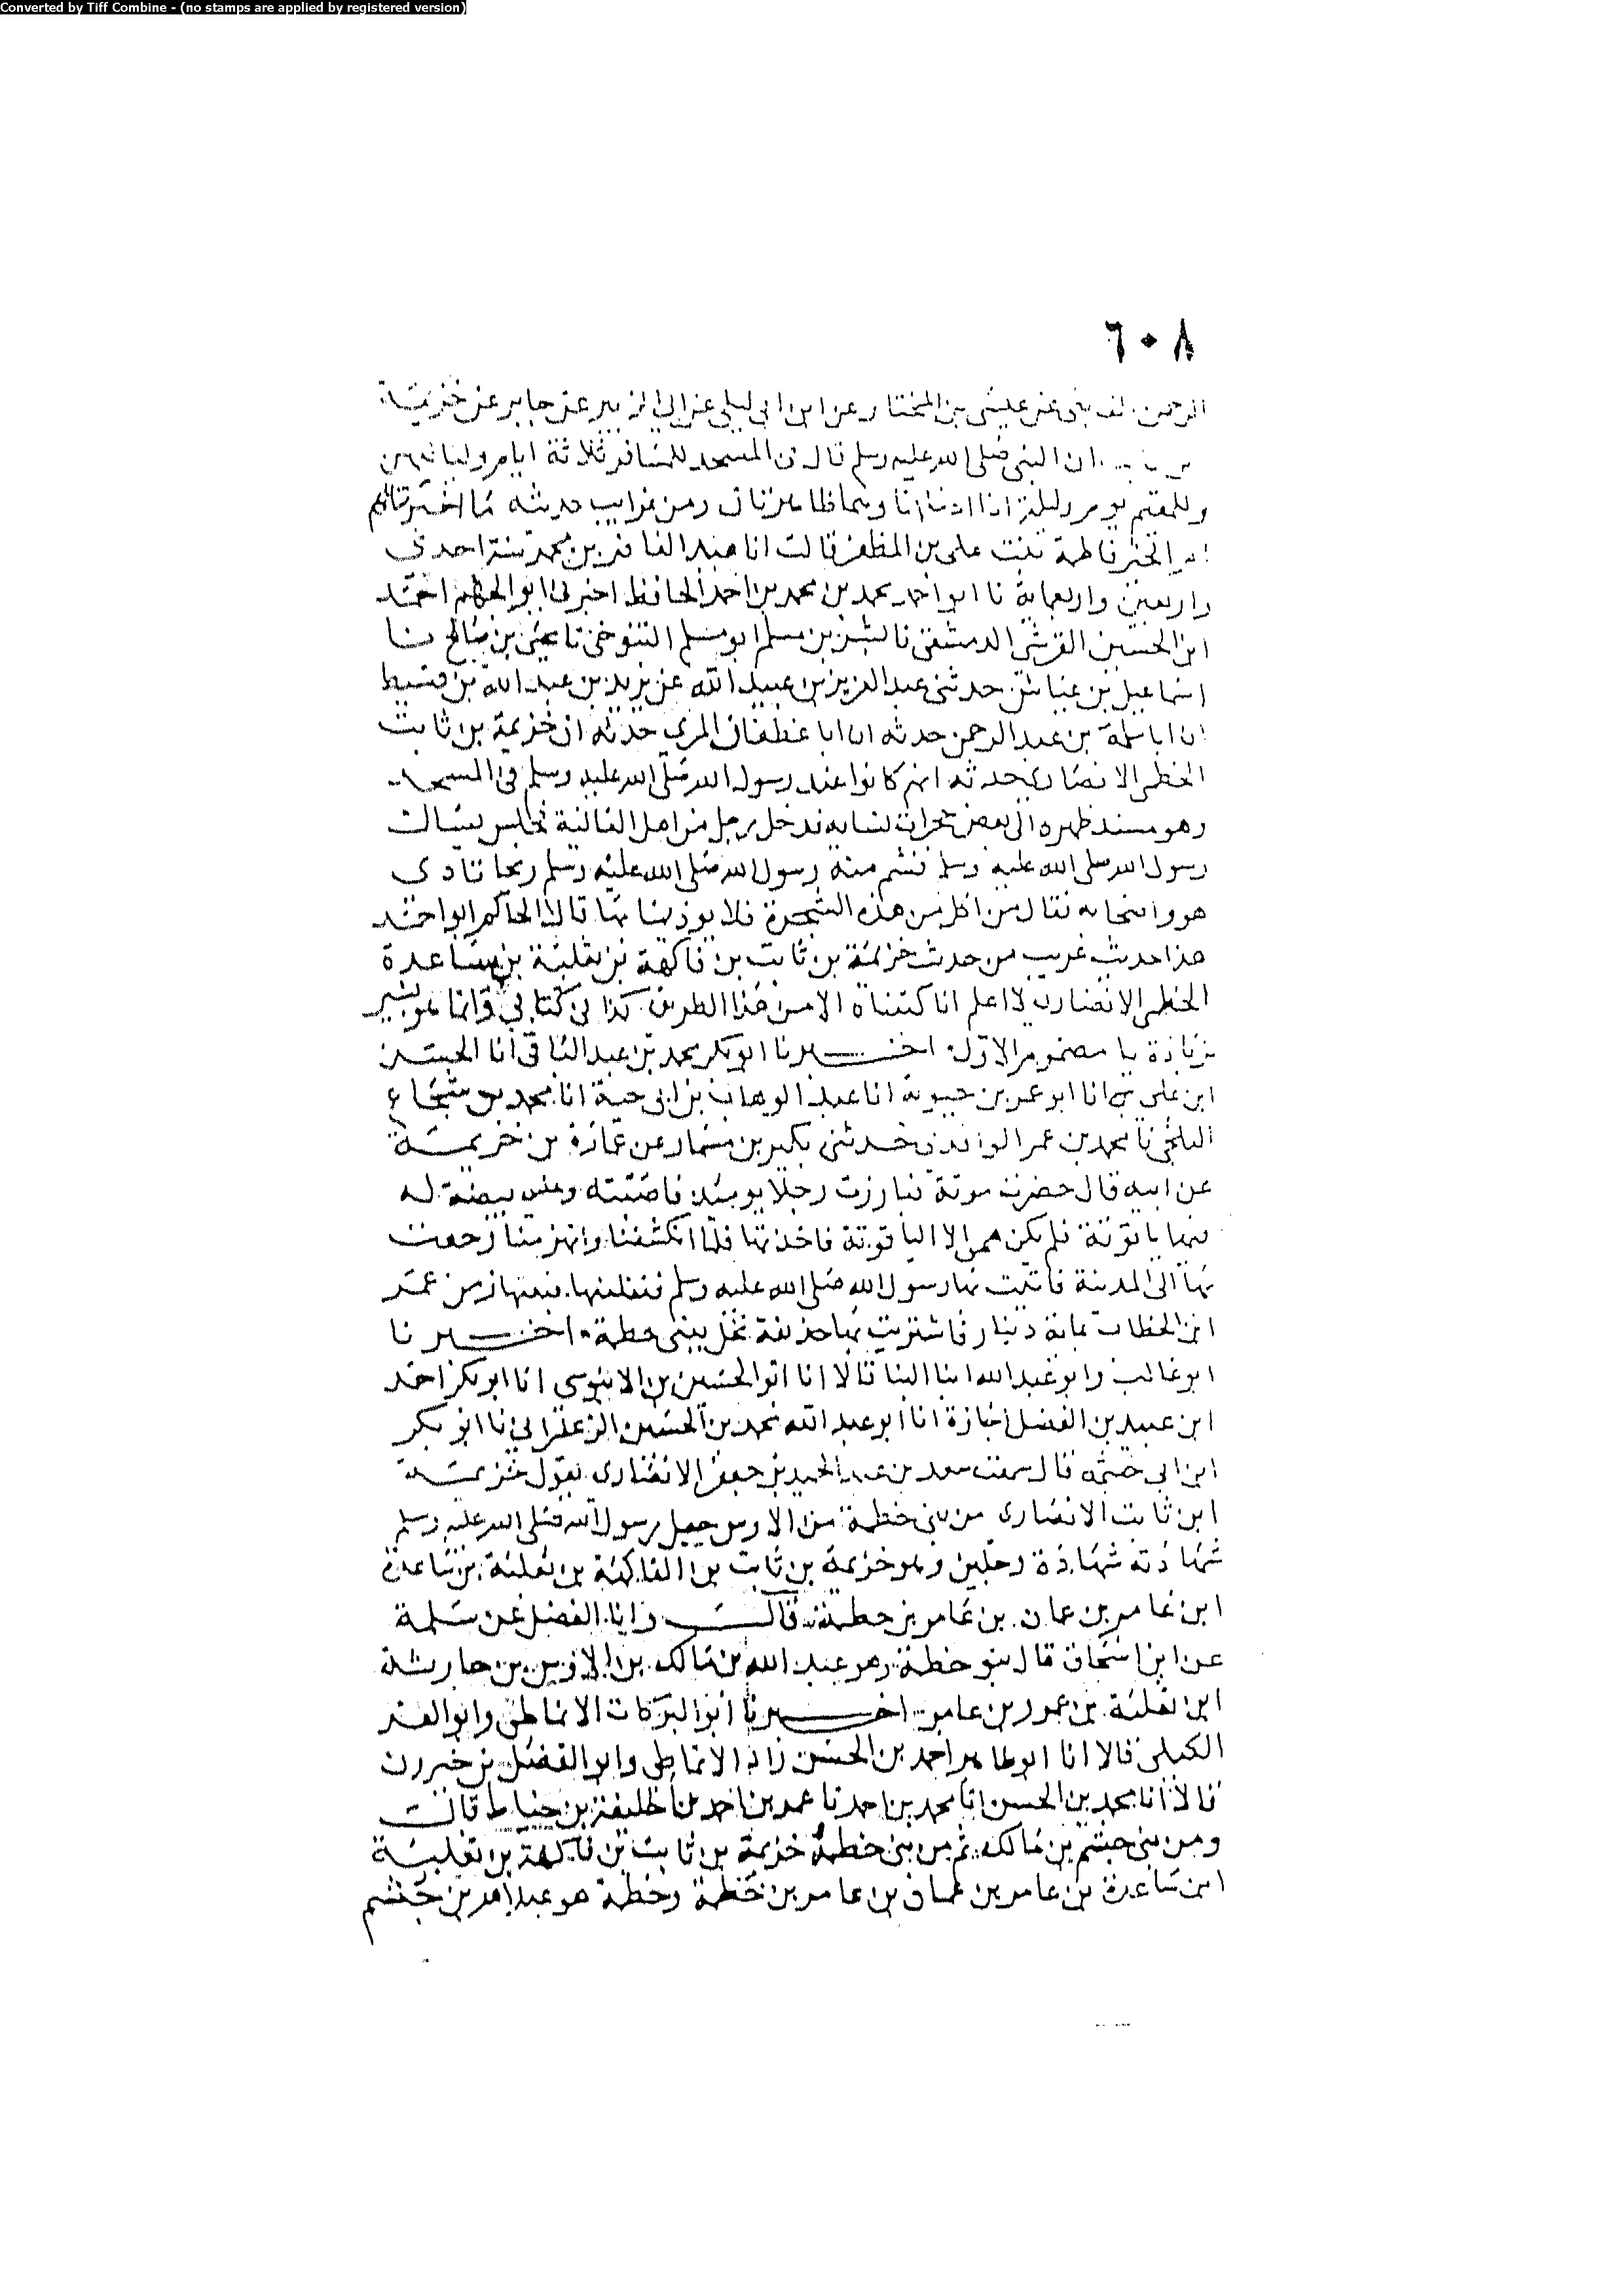 Converted by Tiff Combine - (no stamps are applied by registered version)
٦٠٨
الرحمن عن عيسى بن المختار عن ابن ابي ليلى عن ابي الزبير عن جابر عن خزيمة
ان النبي صلى الله عليه وسلم قال في المسح للمسافر ثلاثة ايام ولياليهن
وللمقيم يوم وليلة اذا ومن غرايب حديثه ما اخبرتناهم
فاطمة بنت علي بن المظفر قالت انا عبد الغافر بن محمد سنة احدى
واربعين واربعماية نا ابو احمد محمد بن محمد بن احمد الحافظ اخبرني ابو الجهم احمد
ابن الحسين القرشي الدمشقي نا بشر بن مسلم ابو مسلم التنوخي نا يحيى بن صالح نا
اسماعيل بن عياش حدثني عبد العزيز بن عبيد الله عن يزيد بن عبد الله بن قسيط
ان ابا سلمة بن عبد الرحمن حدثه ان ابا غطفان المري حدثه ان خزيمة بن ثابت
الخطمي الانصاري حدثه انهم كانوا عند رسول الله صلى الله عليه وسلم في المسجد
وهو مسند ظهره الى بعض حجرات نسايه فدخل رجل من اهل العالية فجلس يسال
رسول الله صلى الله عليه وسلم فشم منه رسول الله صلى الله عليه وسلم ريحا تاذى
هو واصحابه فقال من اكل من هذه الشجرة فلا يوذينا بها قال الحاكم ابو احمد
هذا حديث غريب من حديث خزيمة بن ثابت بن فاكهة بن ثعلبة بن ساعدة
الخطمي الانصاري لا اعلم انا كتبناه الا من هذا الطريق كذا في كتابي وانما هو بشير
بزيادة يا مضموم الاول اخبرنا ابو بكر محمد بن عبد الباقي انا الحسن
ابن علي انا ابو عمر بن حيوية انا عبد الوهاب بن ابي حية انا محمد بن شجاع
البلخي نا محمد بن عمر الواقدي حدثني بكير بن مسمار عن عمارة بن خزيمة
عن ابيه قال حضرت موتة فبارزت رجلا يوميذ فاصبته وعليه بيضة له
فيها ياقوتة فلم يكن همي الا الياقوتة فاخذتها فلما انكشفنا وانهزمنا رجعت
بها الى المدينة فاتيت بها رسول الله صلى الله عليه وسلم فنفلنيها فبعتها زمن عمر
ابن الخطاب بماية دينار فاشتريت بها حديقة نخل ببني خطمة اخبرنا
ابو غالب وابو عبد الله ابنا البنا قالا انا ابو الحسين بن الابنوسي انا ابو بكر احمد
ابن عبيد بن الفضل اجازة انا ابو عبد الله محمد بن الحسين الزعفراني نا ابو بكر
ابن ابي خيثمة قال سمعت سعد بن عبد الحميد بن جعفر الانصاري يقول خزيمة
ابن ثابت الانصاري من بني خطمة من الاوس جعل رسول الله صلى الله عليه وسلم
شهادته شهادة رجلين وهو خزيمة بن ثابت بن الفاكهة بن ثعلبة بن ساعدة
ابن عامر بن عمان بن عامر بن خطمة قال وانا الفضل عن سلمة
عن ابن اسحاق قال بنو خطمة وهو عبد الله بن مالك بن الاوس بن حارثة
ابن ثعلبة بن عمرو بن عامر اخبرنا ابو البركات الانماطي وابو العز
الكيلي قالا انا ابو طاهر احمد بن الحسن زاد الانماطي وابو الفضل بن خيرون
قالا انا محمد بن الحسن انا محمد بن احمد نا عمر بن احمد نا خليفة بن خياط قال
ومن بني جشم بن مالك ثم من بني خطمة خزيمة بن ثابت بن فاكهة بن ثعلبة
ابن ساعدة بن عامر بن عمان بن عامر بن خطمة وخطمة هو عبد الله بن جشم